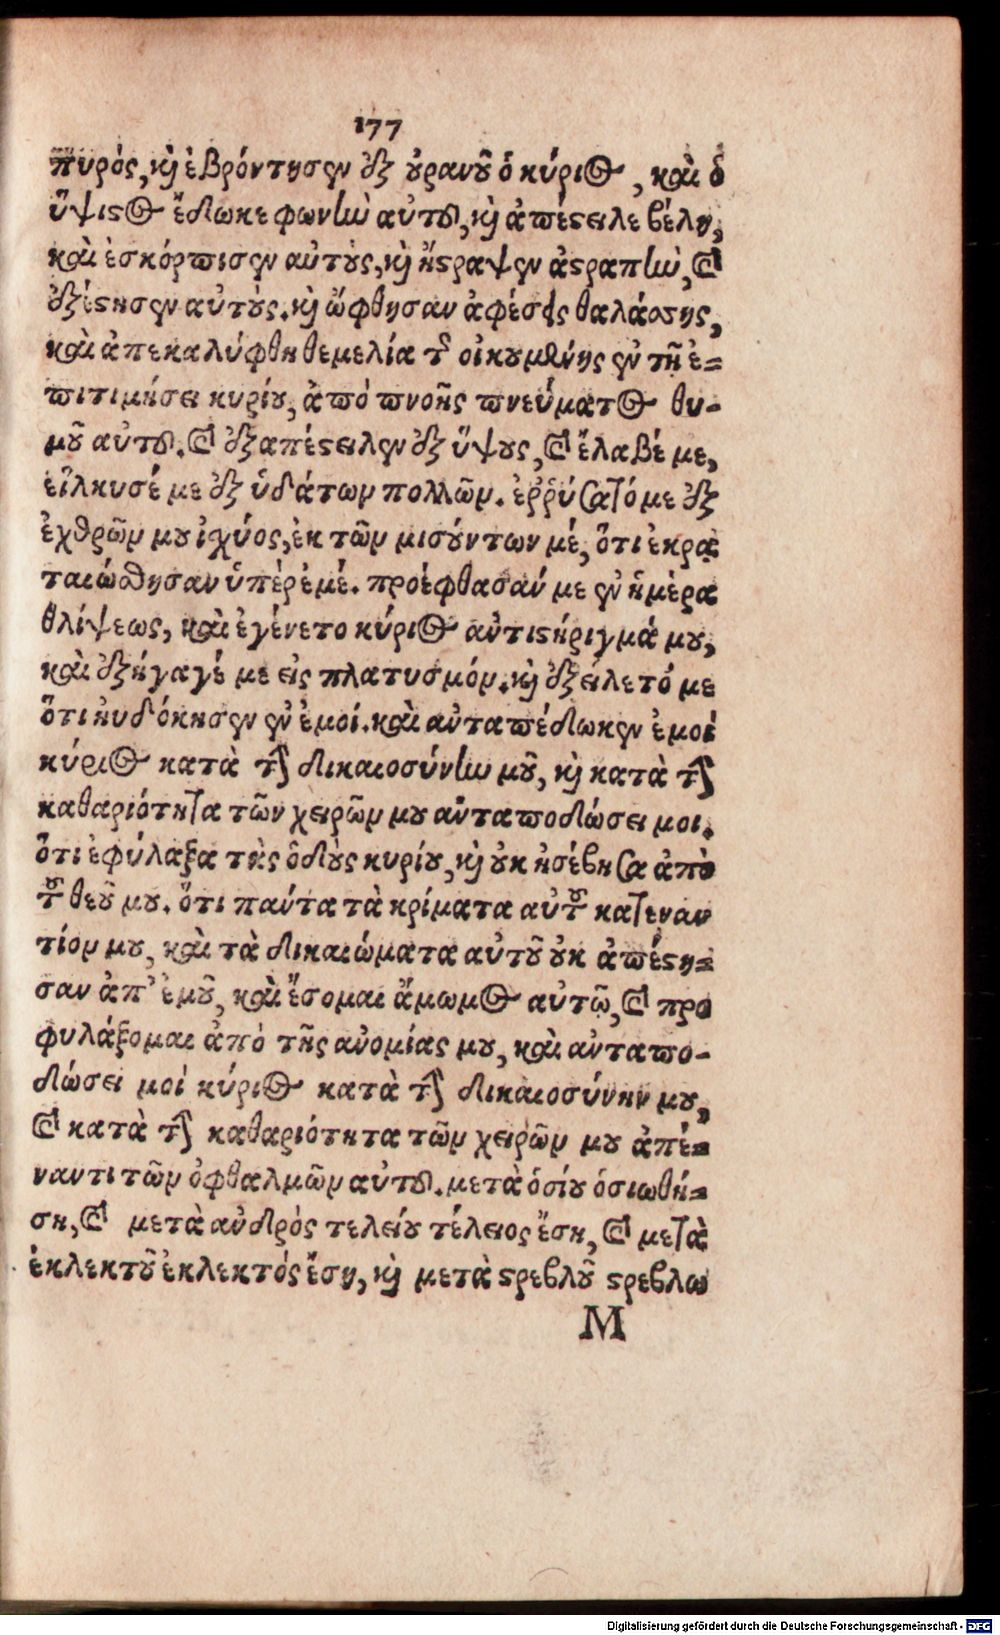 177
πυρός, κὶ ἐβρόντησεν ἐξ οὐρανοῦ ὁ κύριος, καὶ ὁ
ὕψιστος ἔδωκε φωνὴν αὐτοῦ, κὶ ἀπέστειλε βέλη,
καὶ ἐσκόρπισεν αὐτοὺς, κὶ ἤστραψεν ἀστραπὴν, καὶ
ἐξέστησεν αὐτούς. κὶ ὤφθησαν ἀφέσεις θαλάσσης,
καὶ ἀπεκαλύφθη θεμελία τῆς οἰκουμένης ἐν τῇ ἐ=
πιτιμήσει κυρίου, ἀπὸ πνοῆς πνεύματος θυ-
μοῦ αὐτοῦ. καὶ ἐξαπέστειλεν ἐξ ὕψους, καὶ ἔλαβέ με,
εἵλκυσέ με ἐξ ὑδάτων πολλῶν. ἐῤῥύσατό με ἐξ
ἐχθρῶν μου ἰχύος, ἐκ τῶν μισούντων μέ, ὅτι ἐκρα
ταιώθησαν ὑπὲρ ἐμέ. προέφθασάν με ἐν ἡμέρα
θλίψεως, καὶ ἐγένετο κύριος αὐτιστήριγμά μου,
καὶ ἐξήγαγέ με εἰς πλατυσμόν. κὶ ἐξείλετό με
ὅτι ηὐδόκησεν ἐν ἐμοί. καὶ αὐταπέδωκεν ἐμοί
κύριος κατὰ τὴν δικαιοσύνην μοῦ, κὶ κατὰ τὴν
καθαριότητα τῶν χειρῶν μου αὐταποδώσει μοι.
ὅτι ἐφύλαξα τὴς ὁδοὺς κυρίου, κὶ οὐκ ἠσέβησα ἀπὸ
τοῦ θεοῦ μου. ὅτι παύτα τὰ κρίματα αὐτοῦ κατεναν
τίον μου, καὶ τὰ δικαιώματα αὐτοῦ οὐκ ἀπέστη=
σαν ἀπ' ἐμοῦ, καὶ ἔσομαι ἄμωμος αὐτῷ, καὶ προ
φυλάξομαι ἀπὸ τῆς αὐομίας μου, καὶ αὐταπο-
δώσει μοί κύριος κατὰ τὴν δικαιοσύνην μου,
καὶ κατὰ τὴν καθαριότητα τῶν χειρῶν μου ἀπέ=
ναντι τῶν ὀφθαλμῶν αὐτοῦ. μετὰ ὁσίου ὁσιωθή=
ση, καὶ μετὰ αὐδρὸς τελείου τέλειος ἔση, καὶ μετὰ
ἐκλεκτοῦ ἐκλεκτός ἔση, κὶ μετὰ στρεβλοῦ στρεβλω
M
Digitalisierung gefördert durch die Deutsche Forschungsgemeinschaft - DFG